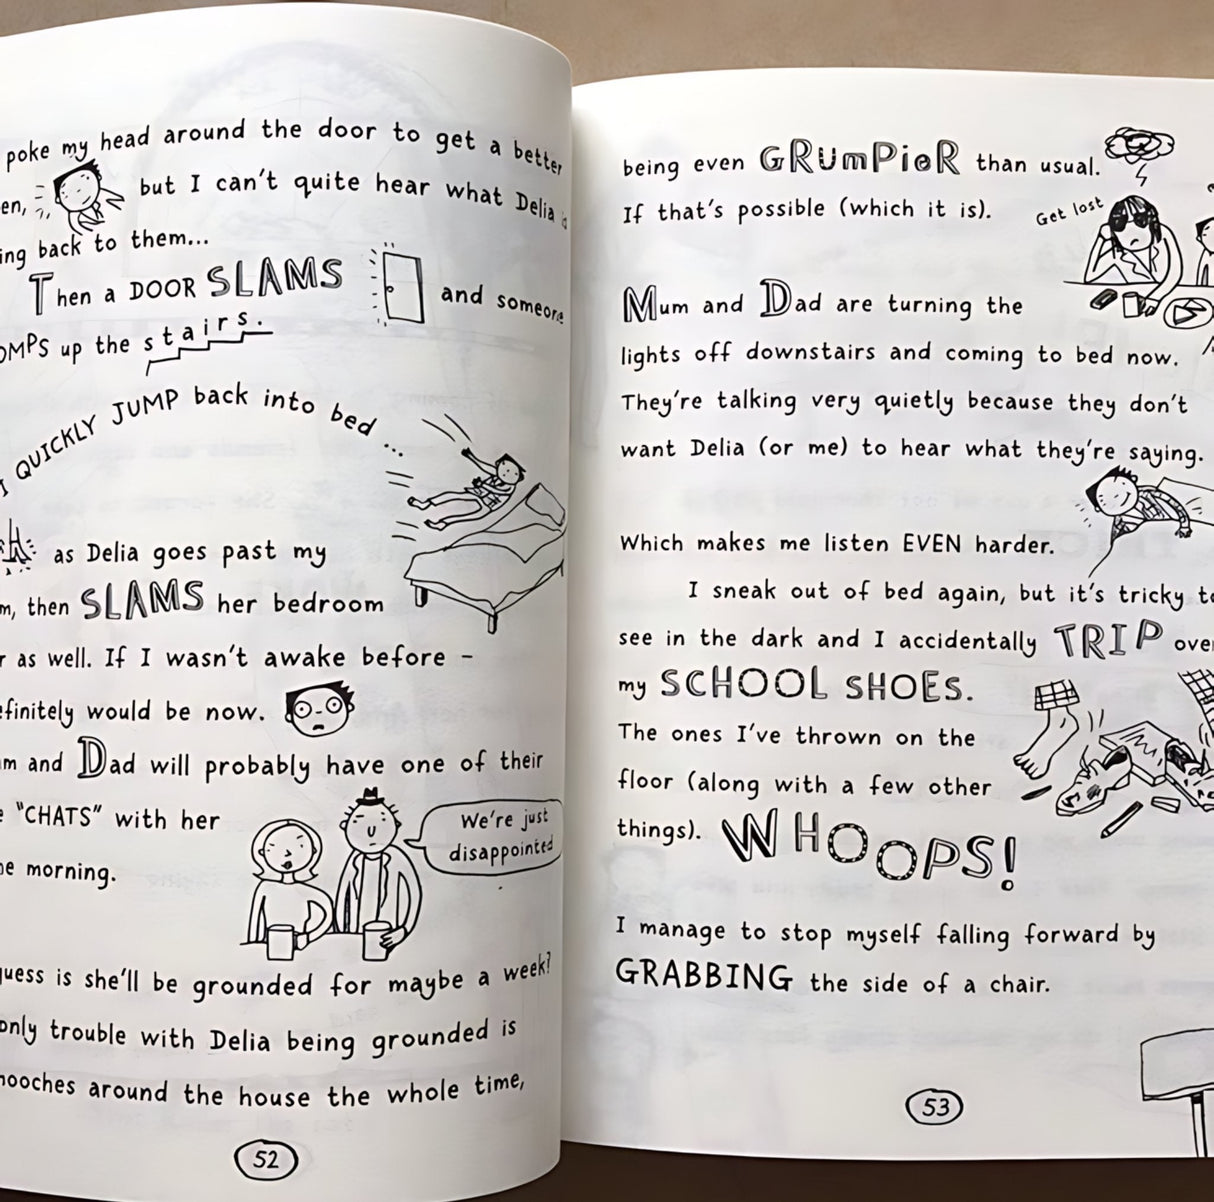 poke my head around the door to get a better
but I can't quite hear what Delia
back to them...
Then a DOOR SLAMS and someone
up the stairs.
I QUICKLY JUMP back into bed...
as Delia goes past my
then SLAMS her bedroom
as well. If I wasn't awake before –
would be now.
and Dad will probably have one of their
"CHATS" with her
We're just
disappointed
morning.
is she'll be grounded for maybe a week?
only trouble with Delia being grounded is
around the house the whole time,
52
being even GRUMPIER than usual.
If that's possible (which it is).
Get lost
Mum and Dad are turning the
lights off downstairs and coming to bed now.
They're talking very quietly because they don't
want Delia (or me) to hear what they're saying.
Which makes me listen EVEN harder.
I sneak out of bed again, but it's tricky to
see in the dark and I accidentally TRIP over
my SCHOOL SHOES.
The ones I've thrown on the
floor (along with a few other
things). WHOOPS!
I manage to stop myself falling forward by
GRABBING the side of a chair.
53